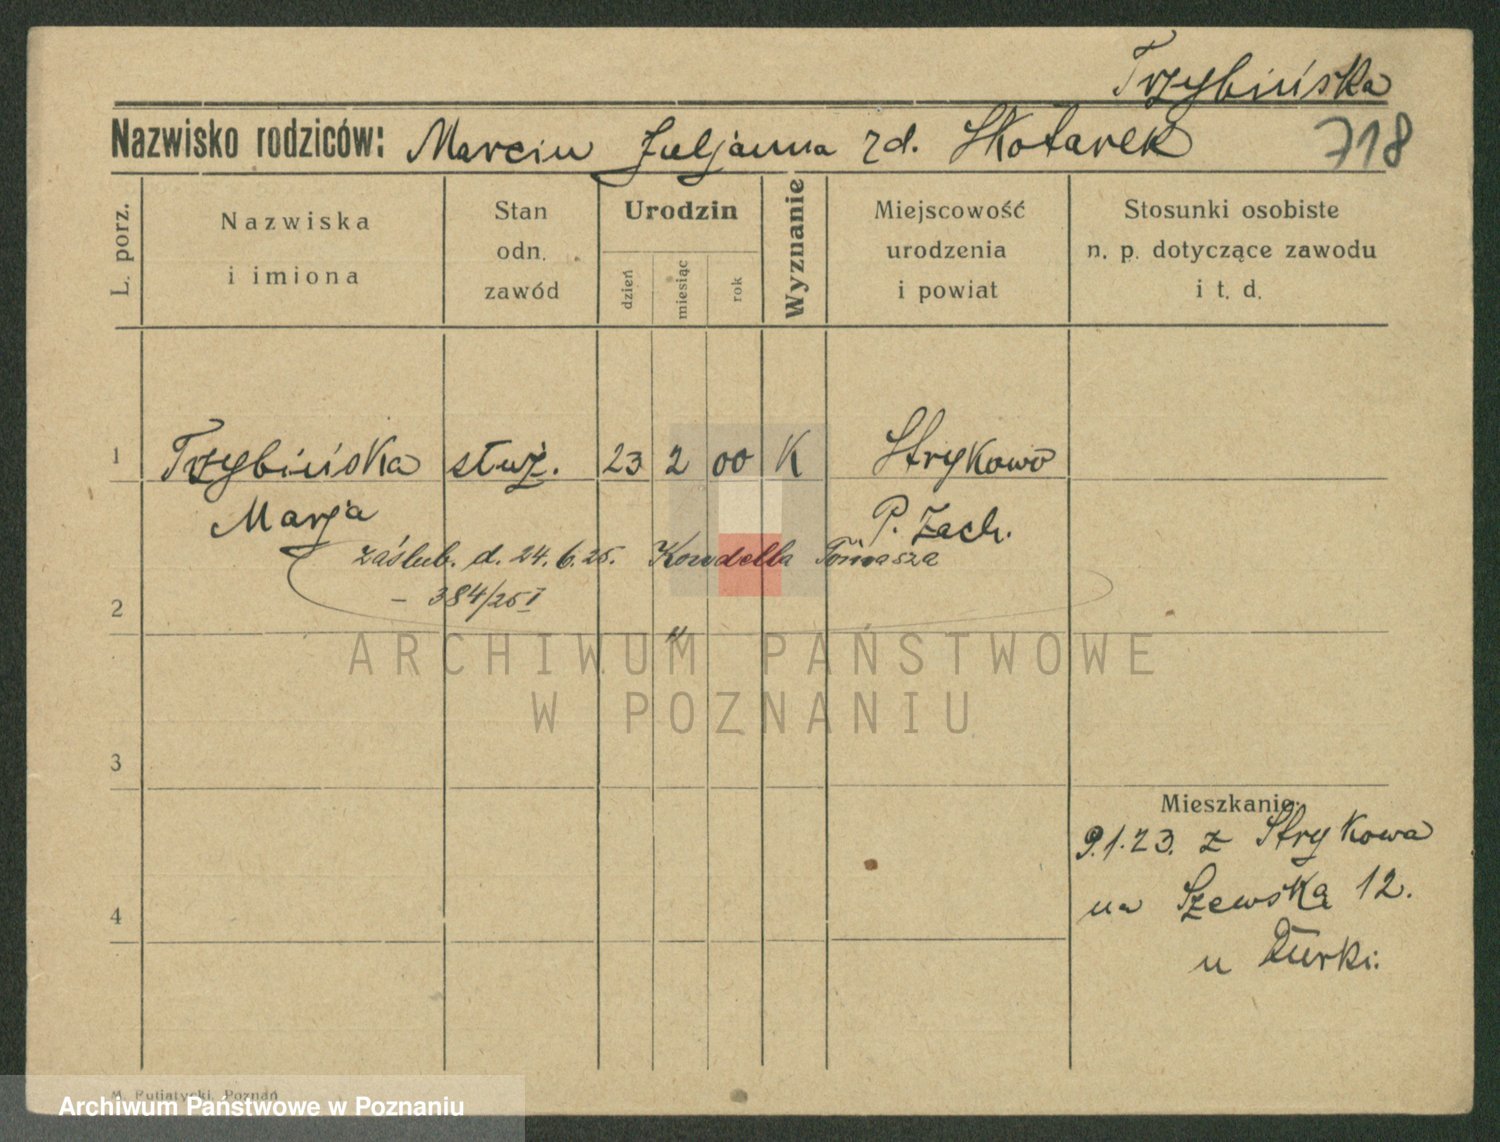 Trzybińska
Nazwisko rodziców: Marcin Juljanna zd. Skotarek
718
L. porz.
Nazwiska
i imiona
Stan
odn.
zawód
Urodzin
dzień
miesiąc
rok
Wyznanie
Miejscowość
urodzenia
i powiat
Stosunki osobiste
n. p. dotyczące zawodu
i t. d.
1 Trzybińska służ. 23 2 00 K Strykowo
Marja P. Zach.
zaślub. d. 24.6.25. Tomasza
– 384/25 I
2
3
Mieszkanie:
9.1.23. z Strykowa
na Szewską 12.
4
u
M. Putiatycki, Poznań
ARCHIWUM PAŃSTWOWE
W POZNANIU
Archiwum Państwowe w Poznaniu